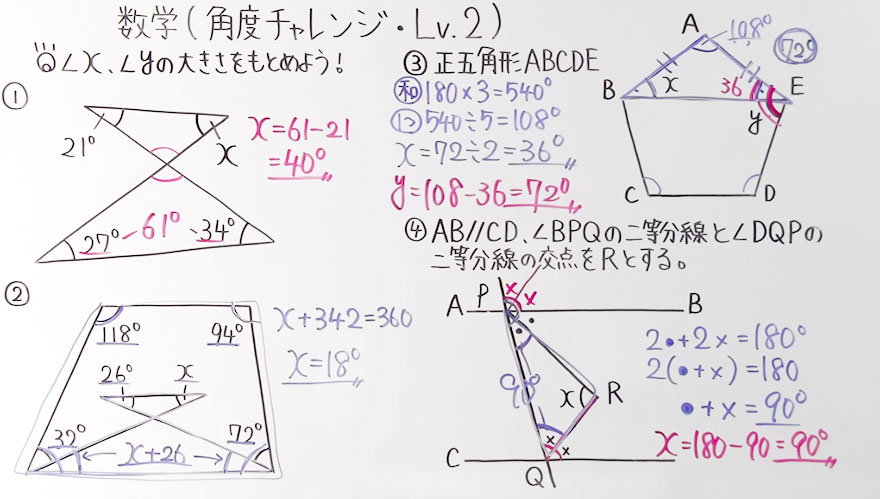 数学(角度チャレンジ・Lv.2)
◎∠x、∠yの大きさをもとめよう!
①
21°
x
27° - 61° - 34°
x=61-21
=40°
②
118°
94°
26°
x
32°
72°
← x+26 →
x+342=360
x=18°
③ 正五角形ABCDE
和 180×3=540°
1つ 540÷5=108°
x=72÷2=36°
y=108-36=72°
A
108°
72°
B
x
36
E
y
C
D
④ AB//CD、∠BPQの二等分線と∠DQPの
二等分線の交点をRとする。
A
P
×
×
B
90°
x
R
×
×
C
Q
D
2•+2×=180°
2(•+×)=180
•+×=90°
x=180-90=90°